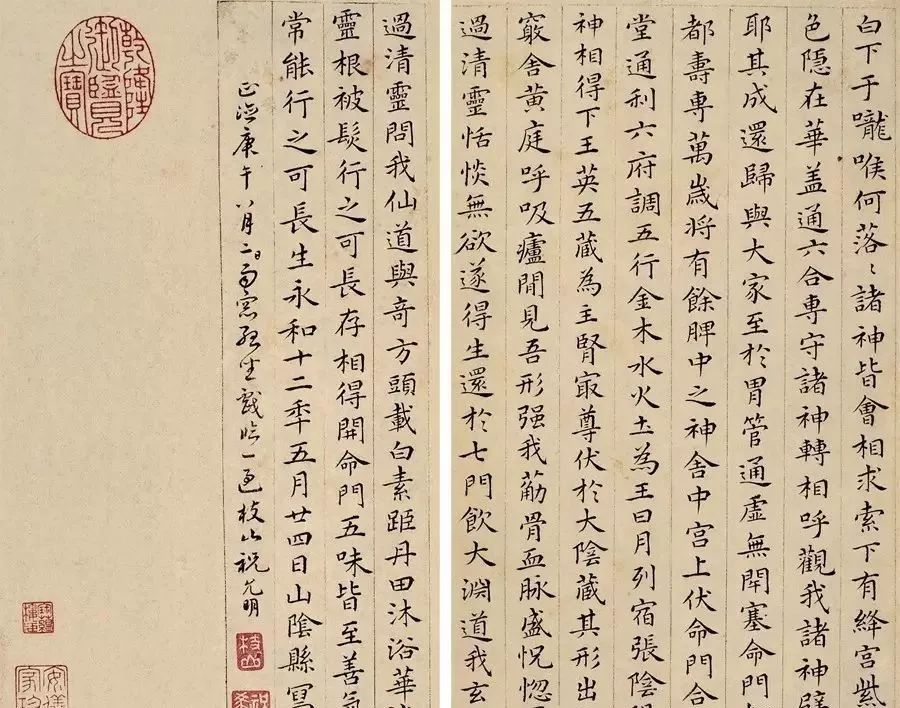 白下于嚨喉何落〻諸神皆會相求索下有絳宮紫
色隱在華盖通六合專守諸神轉相呼觀我諸神
耶其成還歸與大家至於胃管通虛無閇塞命門
都壽專萬歲將有餘脾中之神舍中宮上伏命門合
堂通利六府調五行金木水火土為王日月列宿張陰
神相得下王英五藏為主腎㝡尊伏於大陰藏其形出
竅舍黃庭呼吸廬間見吾形强我筋骨血脉盛怳惚
過清靈恬惔無欲遂得生還於七門飲大淵道我玄
過清靈問我仙道與奇方頭載白素距丹田沐浴華
靈根被髮行之可長存相得開命門五味皆至善氣
常能行之可長生永和十二年五月廿四日山陰縣寫
正德庚午八月二日雨窓孤坐戲臨一過枝山祝允明
枝山
乾隆御覽之寶